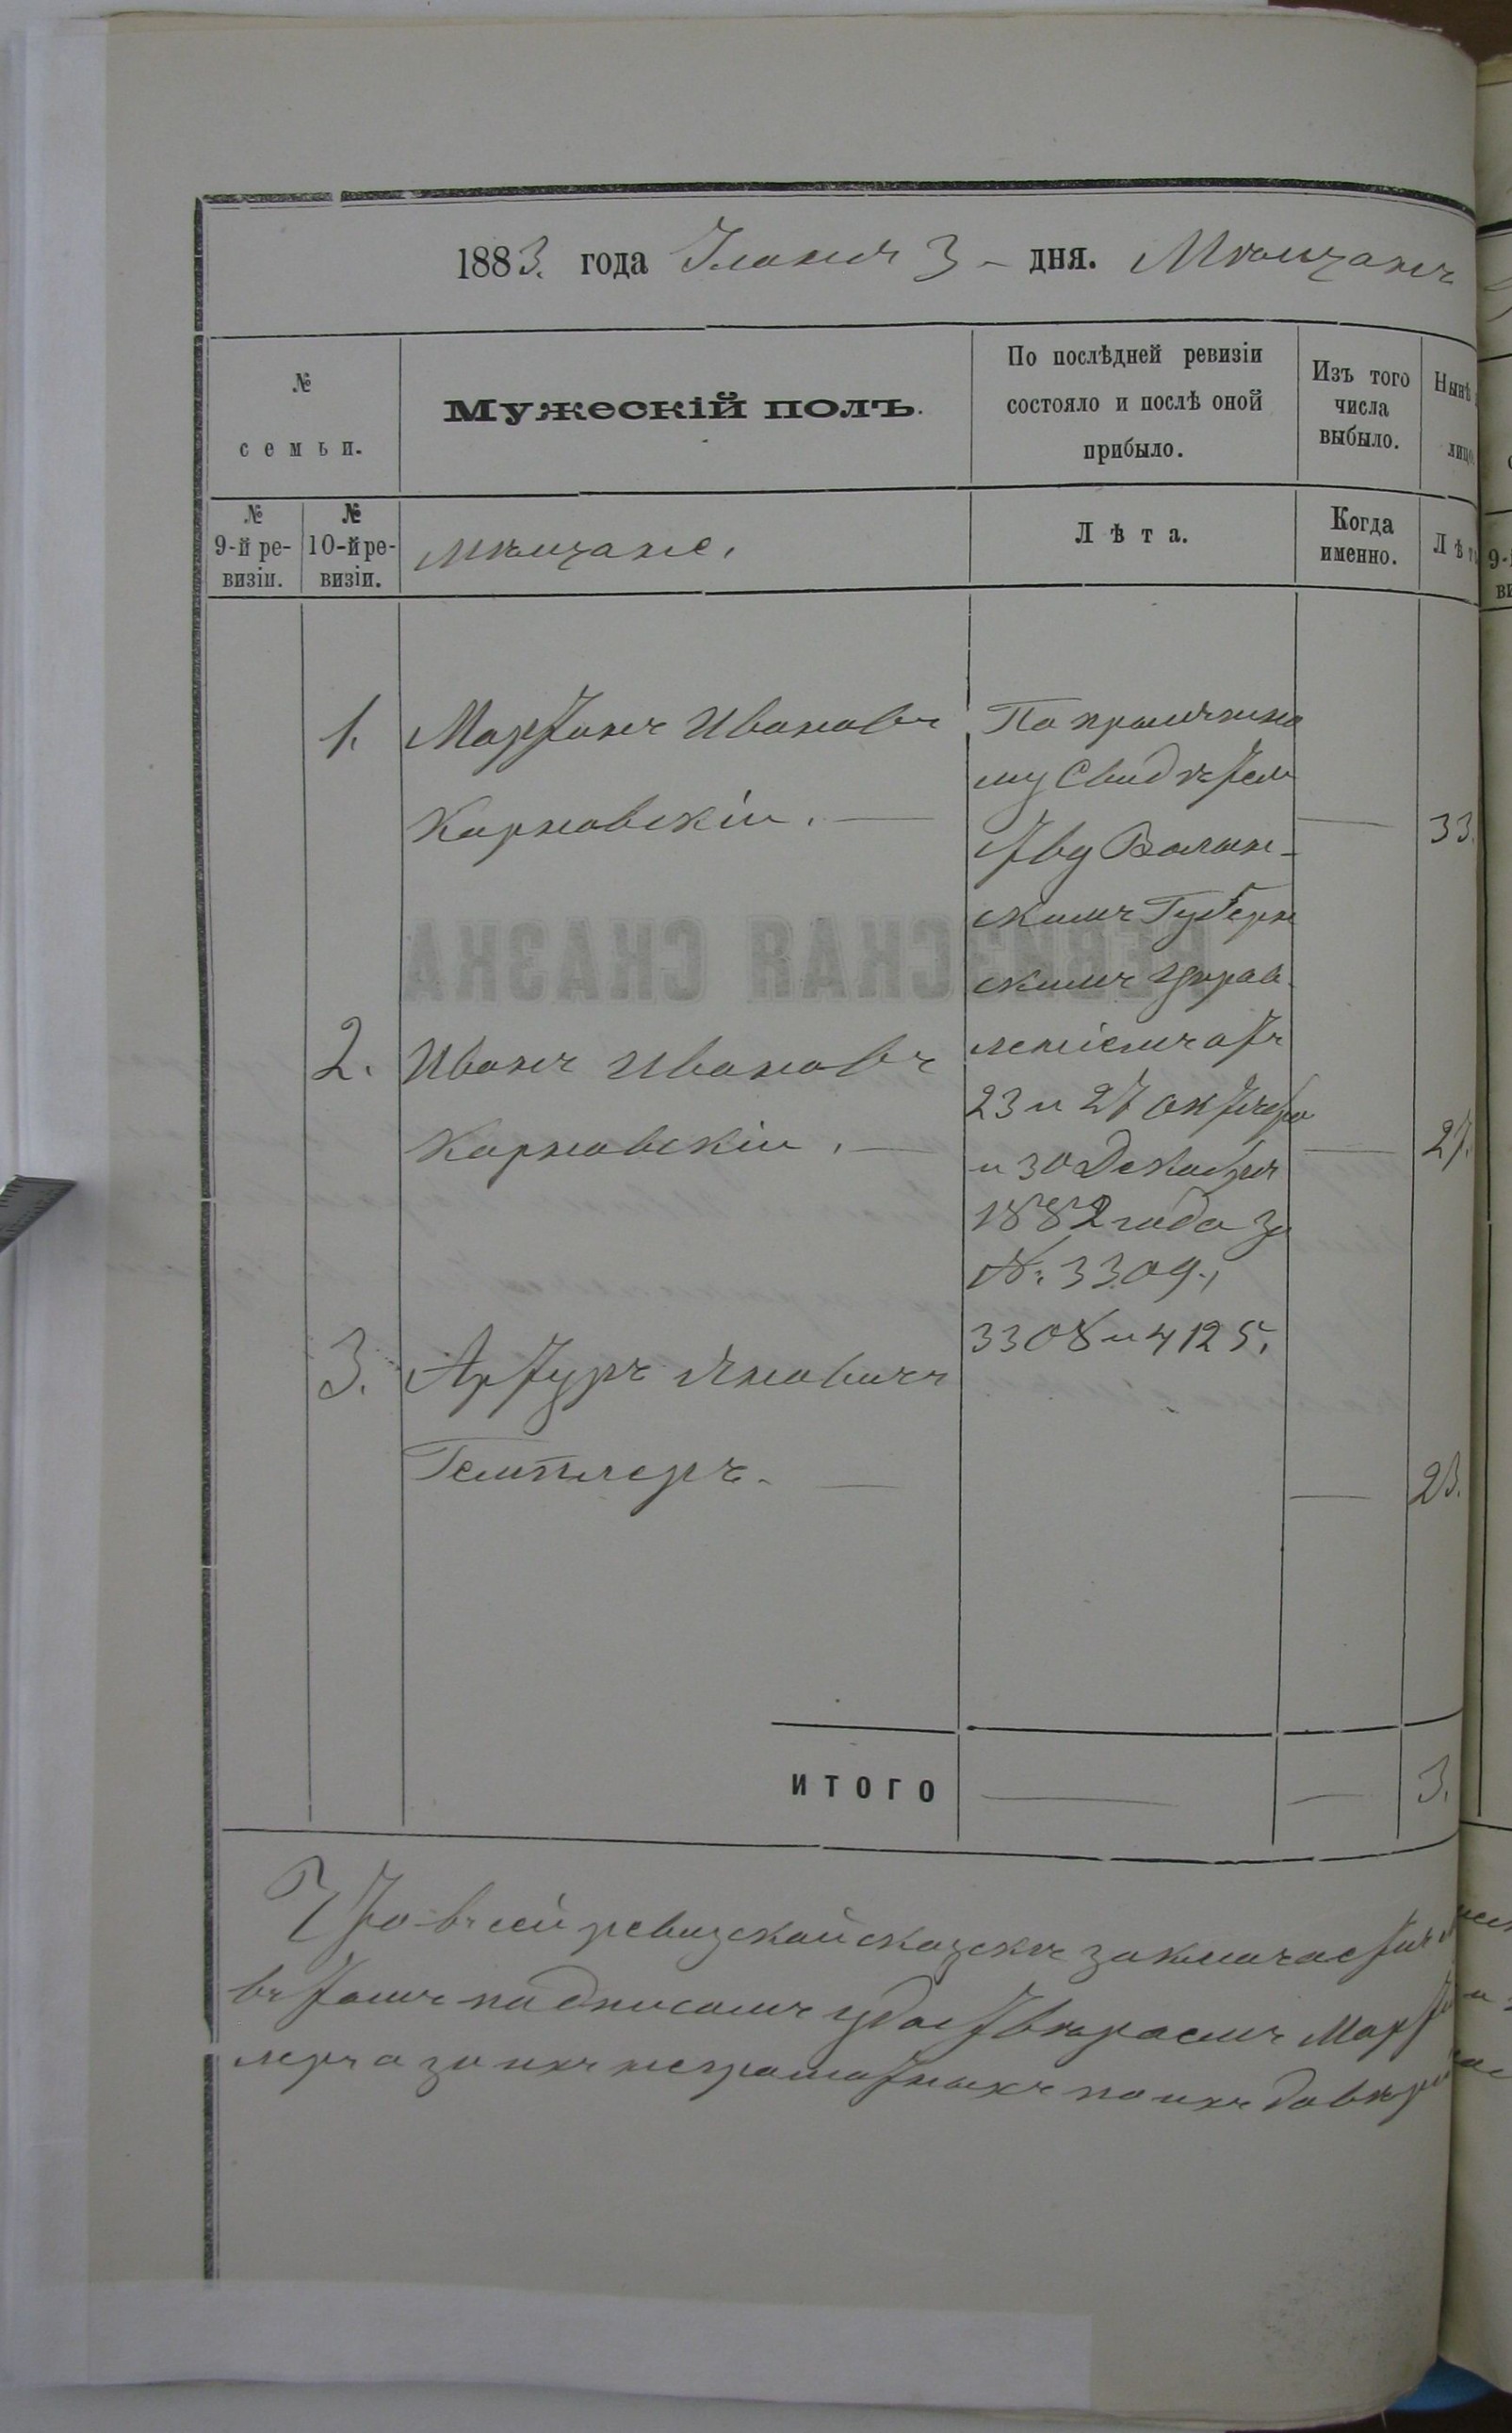 1883. года Іюня 3 – дня. Мѣщанъ
№
семьи.
Мужескій полъ.
По послѣдней ревизіи
состояло и послѣ оной
прибыло.
Изъ того
числа
выбыло.
Нынѣ
лицо
№
9-й ре-
визіи.
№
10-й ре-
визіи.
мѣщане,
Лѣта.
Когда
именно.
Лѣт
1. Мартинъ Ивановъ
Карновскій. — — 33.
По
му Свидѣтель
ству Волын-
скимъ Губерн
скимъ Управ
леніемъ отъ
23 и 27 октября
и 30 Декабря
1882 года за
№: 3309.,
3308 и 4125.
2. Иванъ Ивановъ
Карновскій. — — 27.
3. Артуръ Яновичъ
Темплеръ. — — 23.
ИТОГО — — 3.
Что въ сей ревизской сказкѣ заключается
въ томъ подписомъ удостовѣряемъ Март
леръ а за ихъ неграмотныхъ по ихъ довѣрі
РЕВИЗСКАЯ СКАЗКА